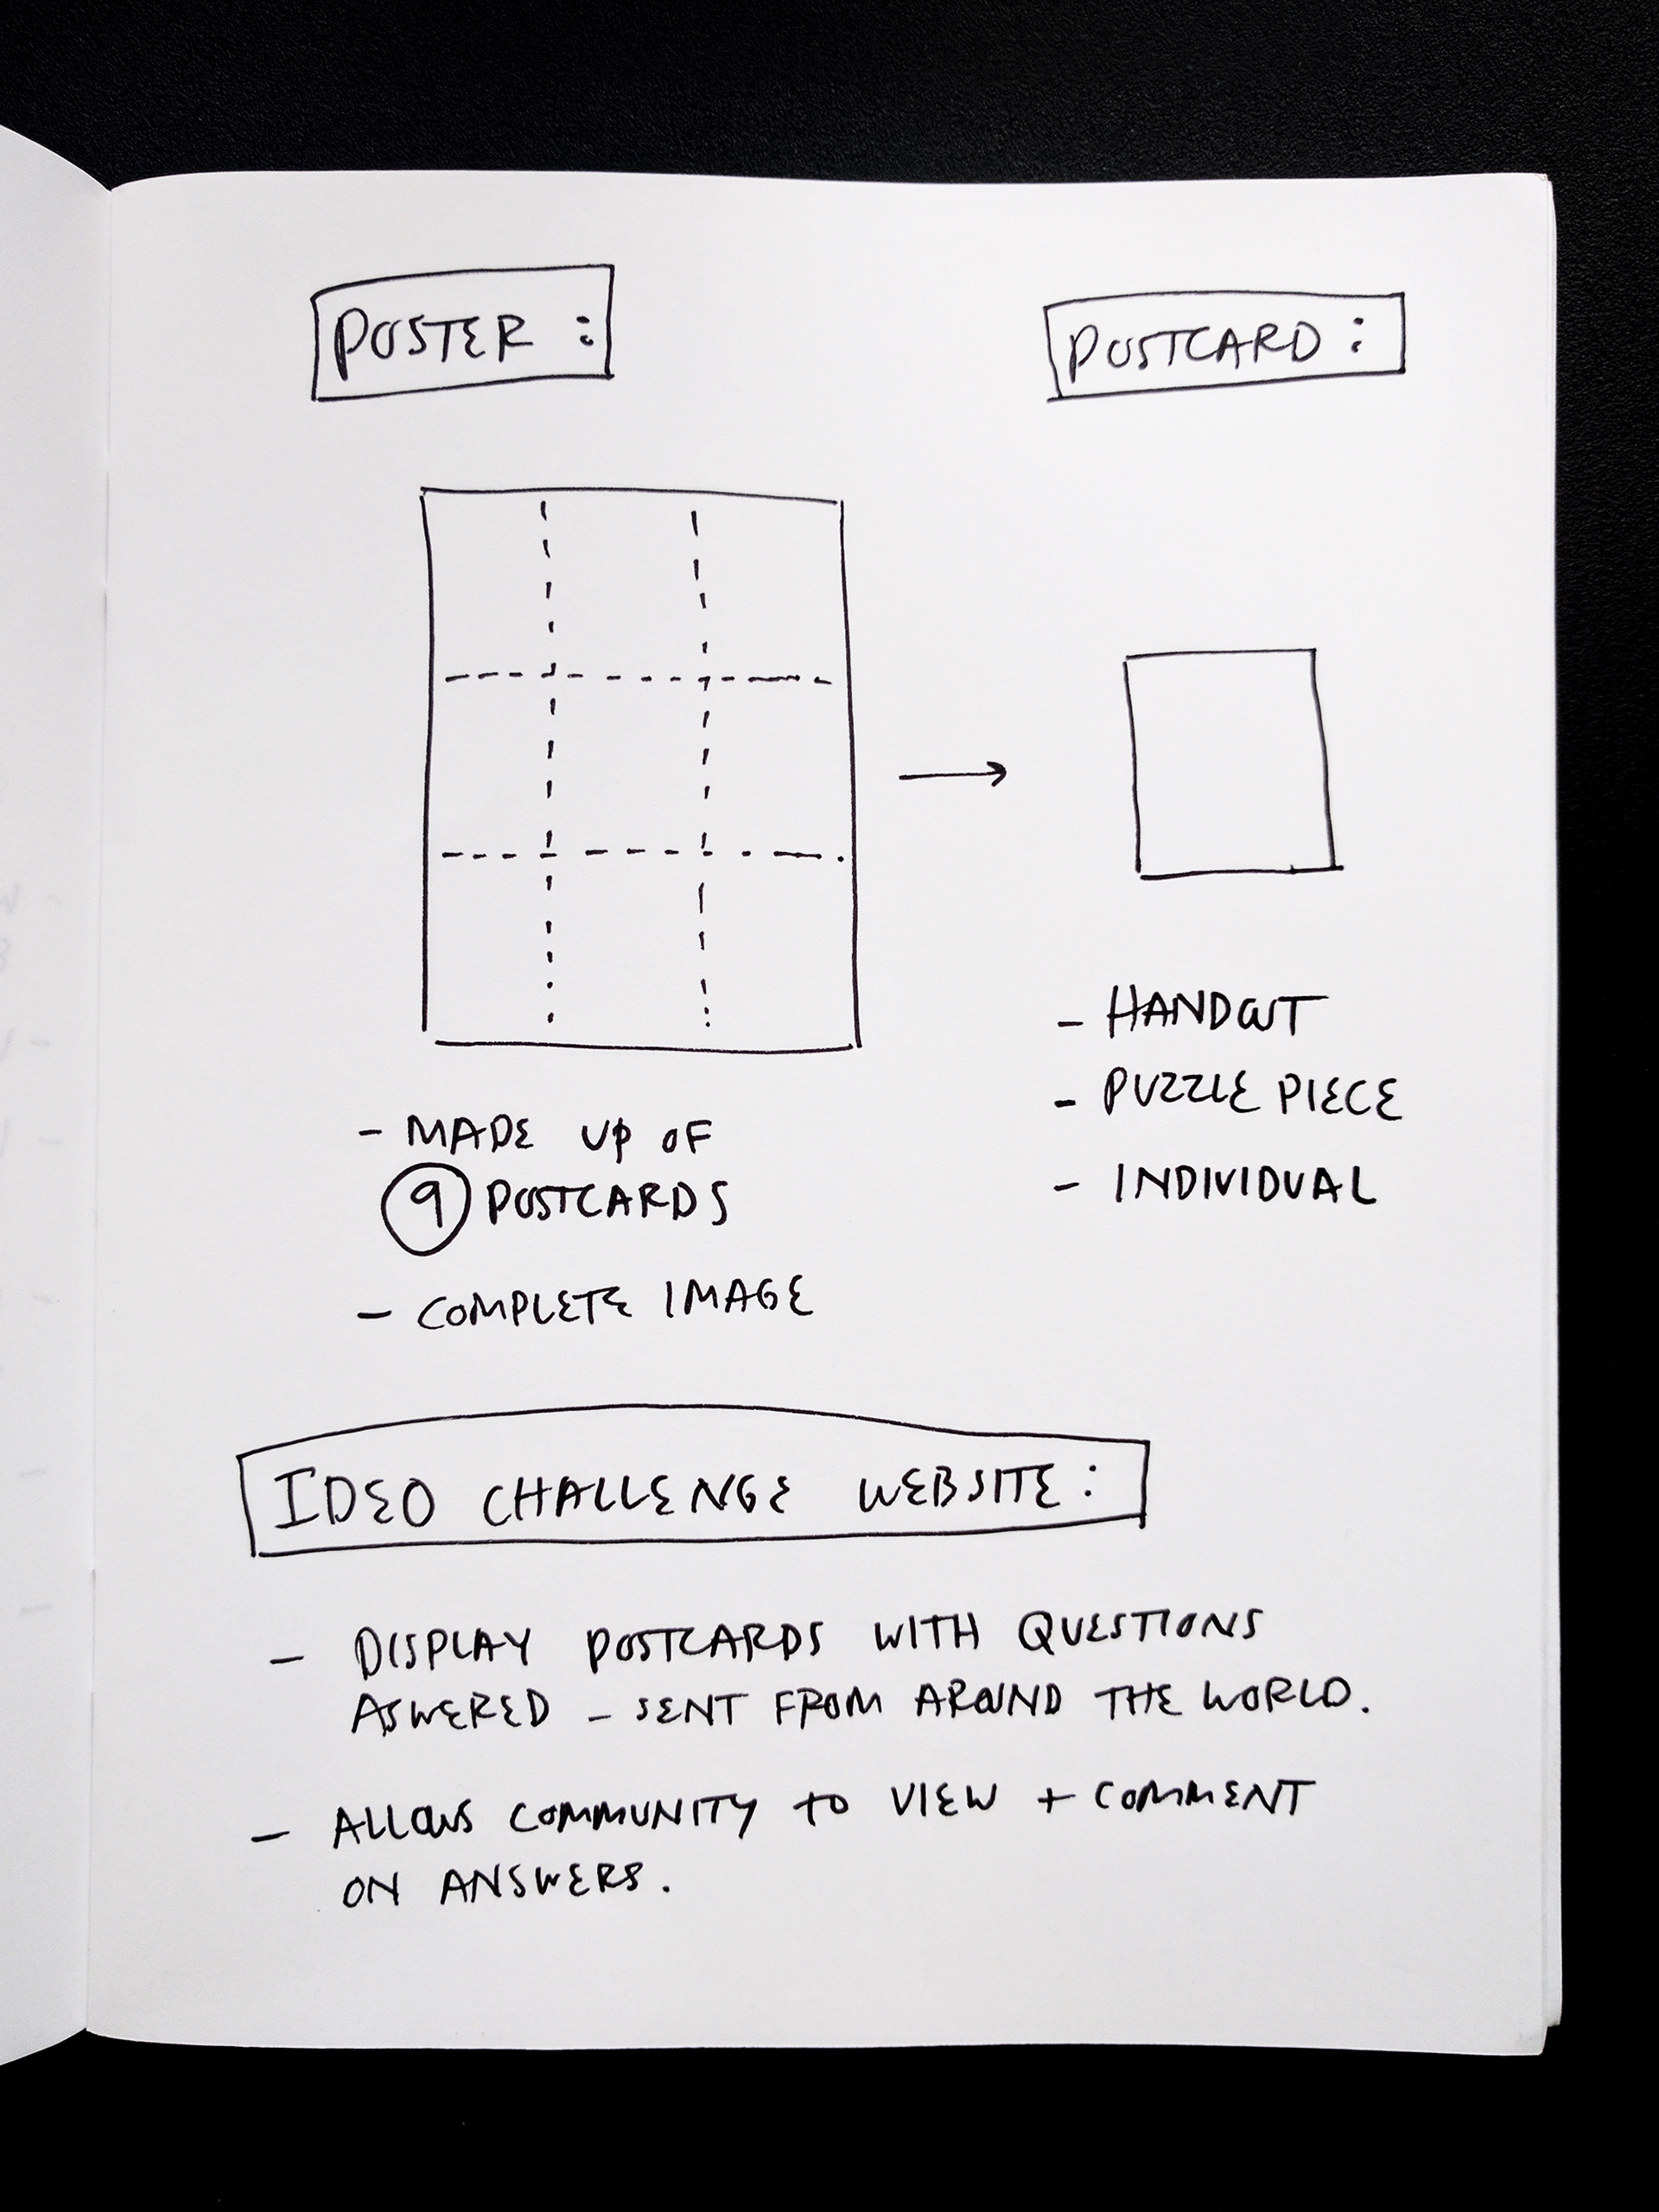 POSTER :
POSTCARD :
- HANDOUT
- PUZZLE PIECE
- INDIVIDUAL
- MADE UP OF
9 POSTCARDS
- COMPLETE IMAGE
IDEO CHALLENGE WEBSITE :
- DISPLAY POSTCARDS WITH QUESTIONS
ASWERED - SENT FROM AROUND THE WORLD.
- ALLOWS COMMUNITY TO VIEW + COMMENT
ON ANSWERS.